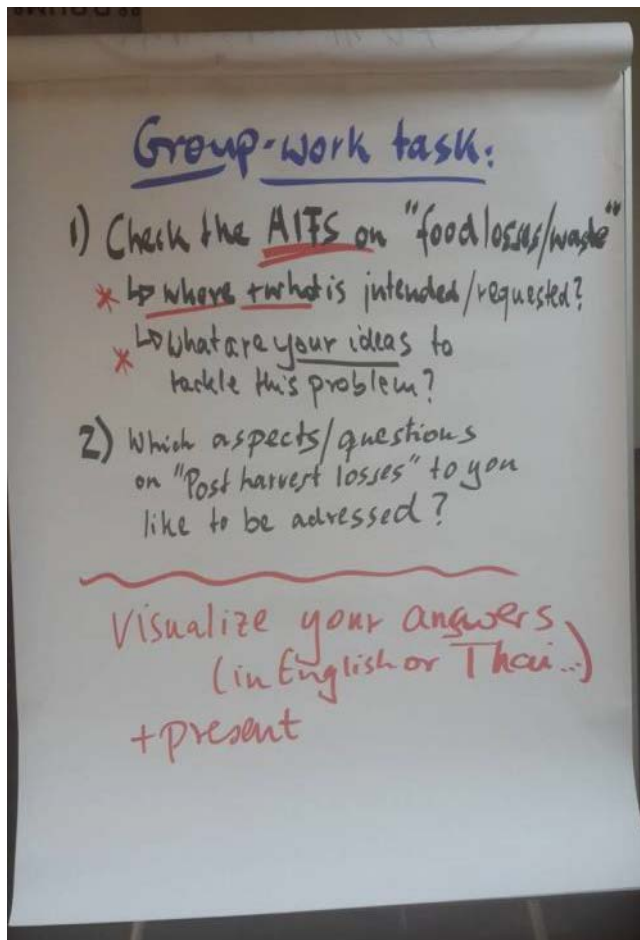 Group-work task:
1) Check the AIFS on "food losses/waste"
* ↳ where + what is intended/requested?
* ↳ What are your ideas to
tackle this problem?
2) Which aspects/questions
on "Post harvest losses" to you
like to be adressed?
Visualize your answers
(in English or Thai...)
+ present